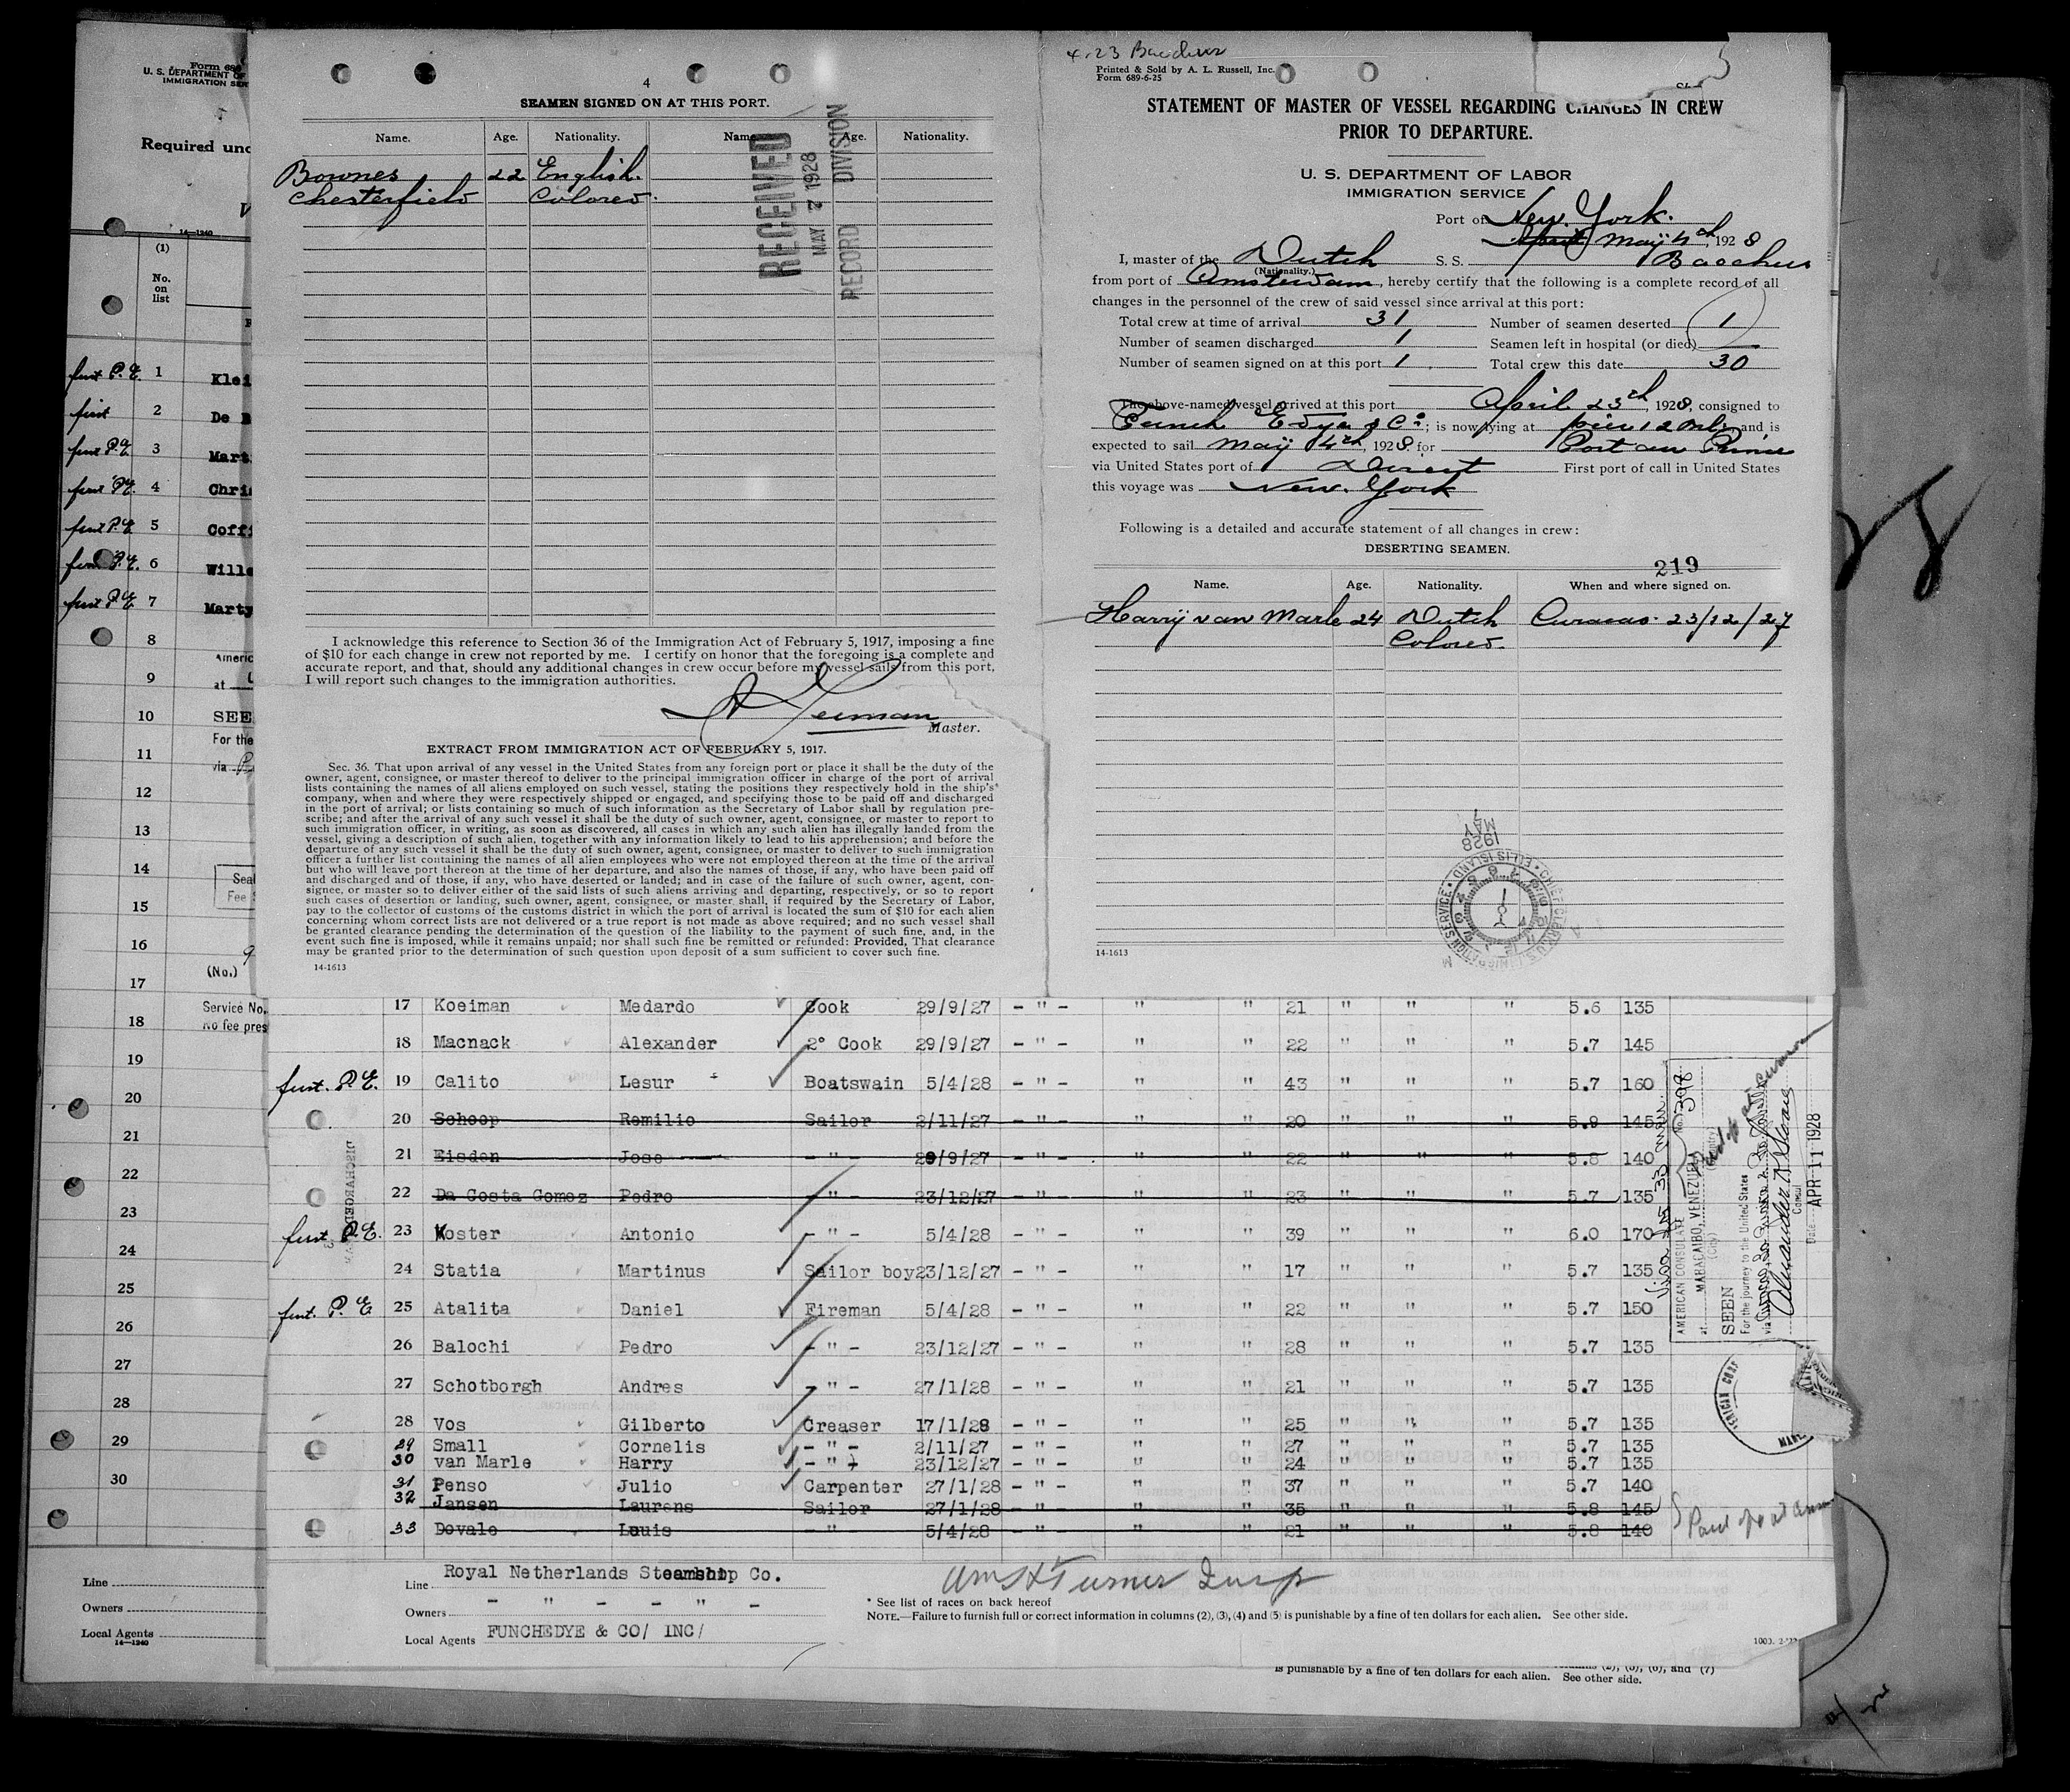 Form 689
U. S. DEPARTMENT OF
IMMIGRATION SER
Required und
14—1240
(1)
No.
on
list
first P. E. 1 Klei
first 2 De
first P.E. 3 Mart
first P.E. 4 Chri
first P.E. 5 Coffi
first P.E. 6 Wille
first P.E. 7 Marty
8
Americ
9 at
10 SEE
For the
11 via
12
13
14 Seal
Fee
15
16
17 (No.)
Service No.
18 No fee pres
19
20
21
22
23
24
25
26
27
28
29
30
Line
Owners
Local Agents
14—1240
4
SEAMEN SIGNED ON AT THIS PORT.
Name. Age. Nationality. Name. Age. Nationality.
Bownes 22 English.
Chesterfield Colored.
RECEIVED
MAY 7 1928
RECORD DIVISION
I acknowledge this reference to Section 36 of the Immigration Act of February 5, 1917, imposing a fine
of $10 for each change in crew not reported by me. I certify on honor that the foregoing is a complete and
accurate report, and that, should any additional changes in crew occur before my vessel sails from this port,
I will report such changes to the immigration authorities.
Master.
EXTRACT FROM IMMIGRATION ACT OF FEBRUARY 5, 1917.
Sec. 36. That upon arrival of any vessel in the United States from any foreign port or place it shall be the duty of the
owner, agent, consignee, or master thereof to deliver to the principal immigration officer in charge of the port of arrival
lists containing the names of all aliens employed on such vessel, stating the positions they respectively hold in the ship's
company, when and where they were respectively shipped or engaged, and specifying those to be paid off and discharged
in the port of arrival; or lists containing so much of such information as the Secretary of Labor shall by regulation pre-
scribe; and after the arrival of any such vessel it shall be the duty of such owner, agent, consignee, or master to report to
such immigration officer, in writing, as soon as discovered, all cases in which any such alien has illegally landed from the
vessel, giving a description of such alien, together with any information likely to lead to his apprehension; and before the
departure of any such vessel it shall be the duty of such owner, agent, consignee, or master to deliver to such immigration
officer a further list containing the names of all alien employees who were not employed thereon at the time of the arrival
but who will leave port thereon at the time of her departure, and also the names of those, if any, who have been paid off
and discharged and of those, if any, who have deserted or landed; and in case of the failure of such owner, agent, con-
signee, or master so to deliver either of the said lists of such aliens arriving and departing, respectively, or so to report
such cases of desertion or landing, such owner, agent, consignee, or master shall, if required by the Secretary of Labor,
pay to the collector of customs of the customs district in which the port of arrival is located the sum of $10 for each alien
concerning whom correct lists are not delivered or a true report is not made as above required; and no such vessel shall
be granted clearance pending the determination of the question of the liability to the payment of such fine, and, in the
event such fine is imposed, while it remains unpaid; nor shall such fine be remitted or refunded: Provided, That clearance
may be granted prior to the determination of such question upon deposit of a sum sufficient to cover such fine.
14-1613
4-23 Bacchus
Printed & Sold by A. L. Russell, Inc.
Form 689-6-25
STATEMENT OF MASTER OF VESSEL REGARDING CHANGES IN CREW
PRIOR TO DEPARTURE.
U. S. DEPARTMENT OF LABOR
IMMIGRATION SERVICE
Port of New York.
April May 4th, 1928
I, master of the Dutch S. S. Bacchus
(Nationality.)
from port of Amsterdam, hereby certify that the following is a complete record of all
changes in the personnel of the crew of said vessel since arrival at this port:
Total crew at time of arrival 31 Number of seamen deserted 1
Number of seamen discharged 1 Seamen left in hospital (or died) —
Number of seamen signed on at this port 1. Total crew this date 30
The above-named vessel arrived at this port April 23th, 1928, consigned to
Funch Edye & Co; is now lying at pier 12 and is
expected to sail May 4th, 1928. for Port au Prince
via United States port of Direct First port of call in United States
this voyage was New. York
Following is a detailed and accurate statement of all changes in crew:
DESERTING SEAMEN.
219
Name. Age. Nationality. When and where signed on.
Harry van Marle 24 Dutch Curacao. 23/12/27
Colored.
MAY 7
1928
14-1613
17 Koeiman Medardo Cook 29/9/27 - " - " " 21 " " " 5.6 135
18 Macnack Alexander 2° Cook 29/9/27 - " - " " 22 " " " 5.7 145
first. P. E. 19 Calito Lesur Boatswain 5/4/28 - " - " " 43 " " " 5.7 160
20 Schoop Remilio Sailor 2/11/27 - " - " " 20 " " " 5.9 145
21 Eisden Jose - " - 29/9/27 - " - " " 22 " " " 5.8 140
22 Da Costa Gomez Pedro - " - 23/12/27 - " - " " 23 " " " 5.7 135
first P. E. 23 Koster Antonio - " - 5/4/28 - " - " " 39 " " " 6.0 170
24 Statia Martinus Sailor boy 23/12/27 - " - " " 17 " " " 5.7 135
first. P. E 25 Atalita Daniel Fireman 5/4/28 - " - " " 22 " " " 5.7 150
26 Balochi Pedro - " - 23/12/27 - " - " " 28 " " " 5.7 135
27 Schotborgh Andres - " - 27/1/28 - " - " " 21 " " " 5.7 135
28 Vos Gilberto Greaser 17/1/28 - " - " " 25 " " " 5.7 135
29 Small Cornelis - " - 2/11/27 - " - " " 27 " " " 5.7 135
30 van Marle Harry - " - 23/12/27 - " - " " 24 " " " 5.7 135
31 Penso Julio Carpenter 27/1/28 - " - " " 37 " " " 5.7 140
32 Jansen Laurens Sailor 27/1/28 - " - " " 35 " " " 5.8 145
33 Dovale Louis - " - 5/4/28 - " - " " 21 " " " 5.8 140
DISCHARGED
AMERICAN CONSULATE No. 398
at MARACAIBO, VENEZUELA
(City) (Country)
SEEN
For the journey to the United States
via
Consul
Date APR 11 1928
Line Royal Netherlands Steamship Co.
Owners - " - - " -
Local Agents FUNCHEDYE & CO/ INC/
Wm H Turner Insp
* See list of races on back hereof
NOTE.—Failure to furnish full or correct information in columns (2), (3), (4) and (5) is punishable by a fine of ten dollars for each alien. See other side.
is punishable by a fine of ten dollars for each alien. See other side.